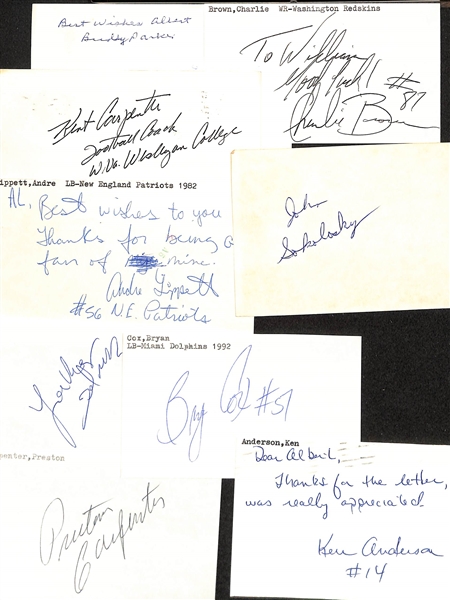 Best Wishes Albert
Buddy Parker
Brown, Charlie WR-Washington Redskins
To William
Good Luck!
Charlie Brown #87
Kent Carpenter
Football Coach
W.Va. Wesleyan College
ippett, Andre LB-New England Patriots 1982
AL, Best wishes to you
Thanks for being a
fan of mine.
Andre Tippett
#56 N.E. Patriots
John
Sokolosky
Cox, Bryan
LB-Miami Dolphins 1992
Bry Cox #51
penter, Preston
Preston
Carpenter
Anderson, Ken
Dear Albert,
Thanks for the letter,
was really appreciated.
Ken Anderson
#14